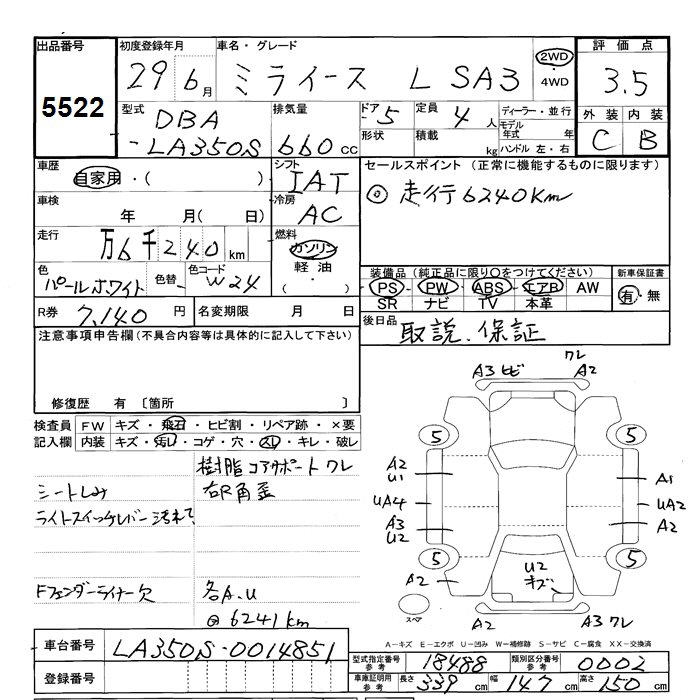 出品番号
5522
初度登録年月
29年 6月
車名・グレード
ミライース L SA3
2WD
・
4WD
評価点
3.5
外装 内装
C B
型式
DBA
-LA350S
排気量
660 cc
ドア
5
定員
4 人
形状
積載
kg
ディーラー・並行
モデル年式 年
ハンドル 左・右
車歴
自家用・( )
シフト
IAT
セールスポイント (正常に機能するものに限ります)
◎ 走行6240Km
車検
年 月( 日)
冷房
AC
走行
万6千240 km
燃料
ガソリン
軽油
( )
色
パールホワイト
色替
色コード
W24
装備品 (純正品に限り○をつけてください)
PS PW ABS エアB AW
SR ナビ TV 本革
新車保証書
有・無
R券
7,140 円
名変期限 月 日
後日品
取説、保証
注意事項申告欄(不具合内容等は具体的に記入して下さい)
修復歴 有 〔箇所 〕
検査員
記入欄
FW キズ・飛石・ヒビ割・リペア跡・×要
内装 キズ・汚レ・コゲ・穴・スレ・キレ・破レ
樹脂コアサポートワレ
シートしみ
ライトスイッチレバー汚れ
Fフェンダーライナー欠
各A.U
@6241km
A3 ヒビ
ワレ
A2
5
5
A2
U1
UA4
A3
U2
A1
UA2
A2
5
5
A2
U2
キズ
スペア
A2
A3 ワレ
A-キズ E-エクボ U-凹み W-補修跡 S-サビ C-腐食 XX-交換済
車台番号
LA350S-0014851
登録番号
型式指定番号
参考
18488
類別区分番号
参考
0002
車庫証明用
参考
長さ
339 cm
幅
147 cm
高さ
150 cm